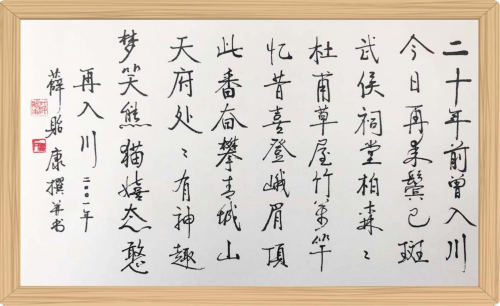 二十年前曾入川
今日再来鬓已斑
武侯祠堂柏森々
杜甫草屋竹萬竿
忆昔喜登峨眉頂
此番奋攀青城山
天府处々有神趣
梦笑熊猫嬉态憨
再入川 二〇〇一年
薛贻康撰并书